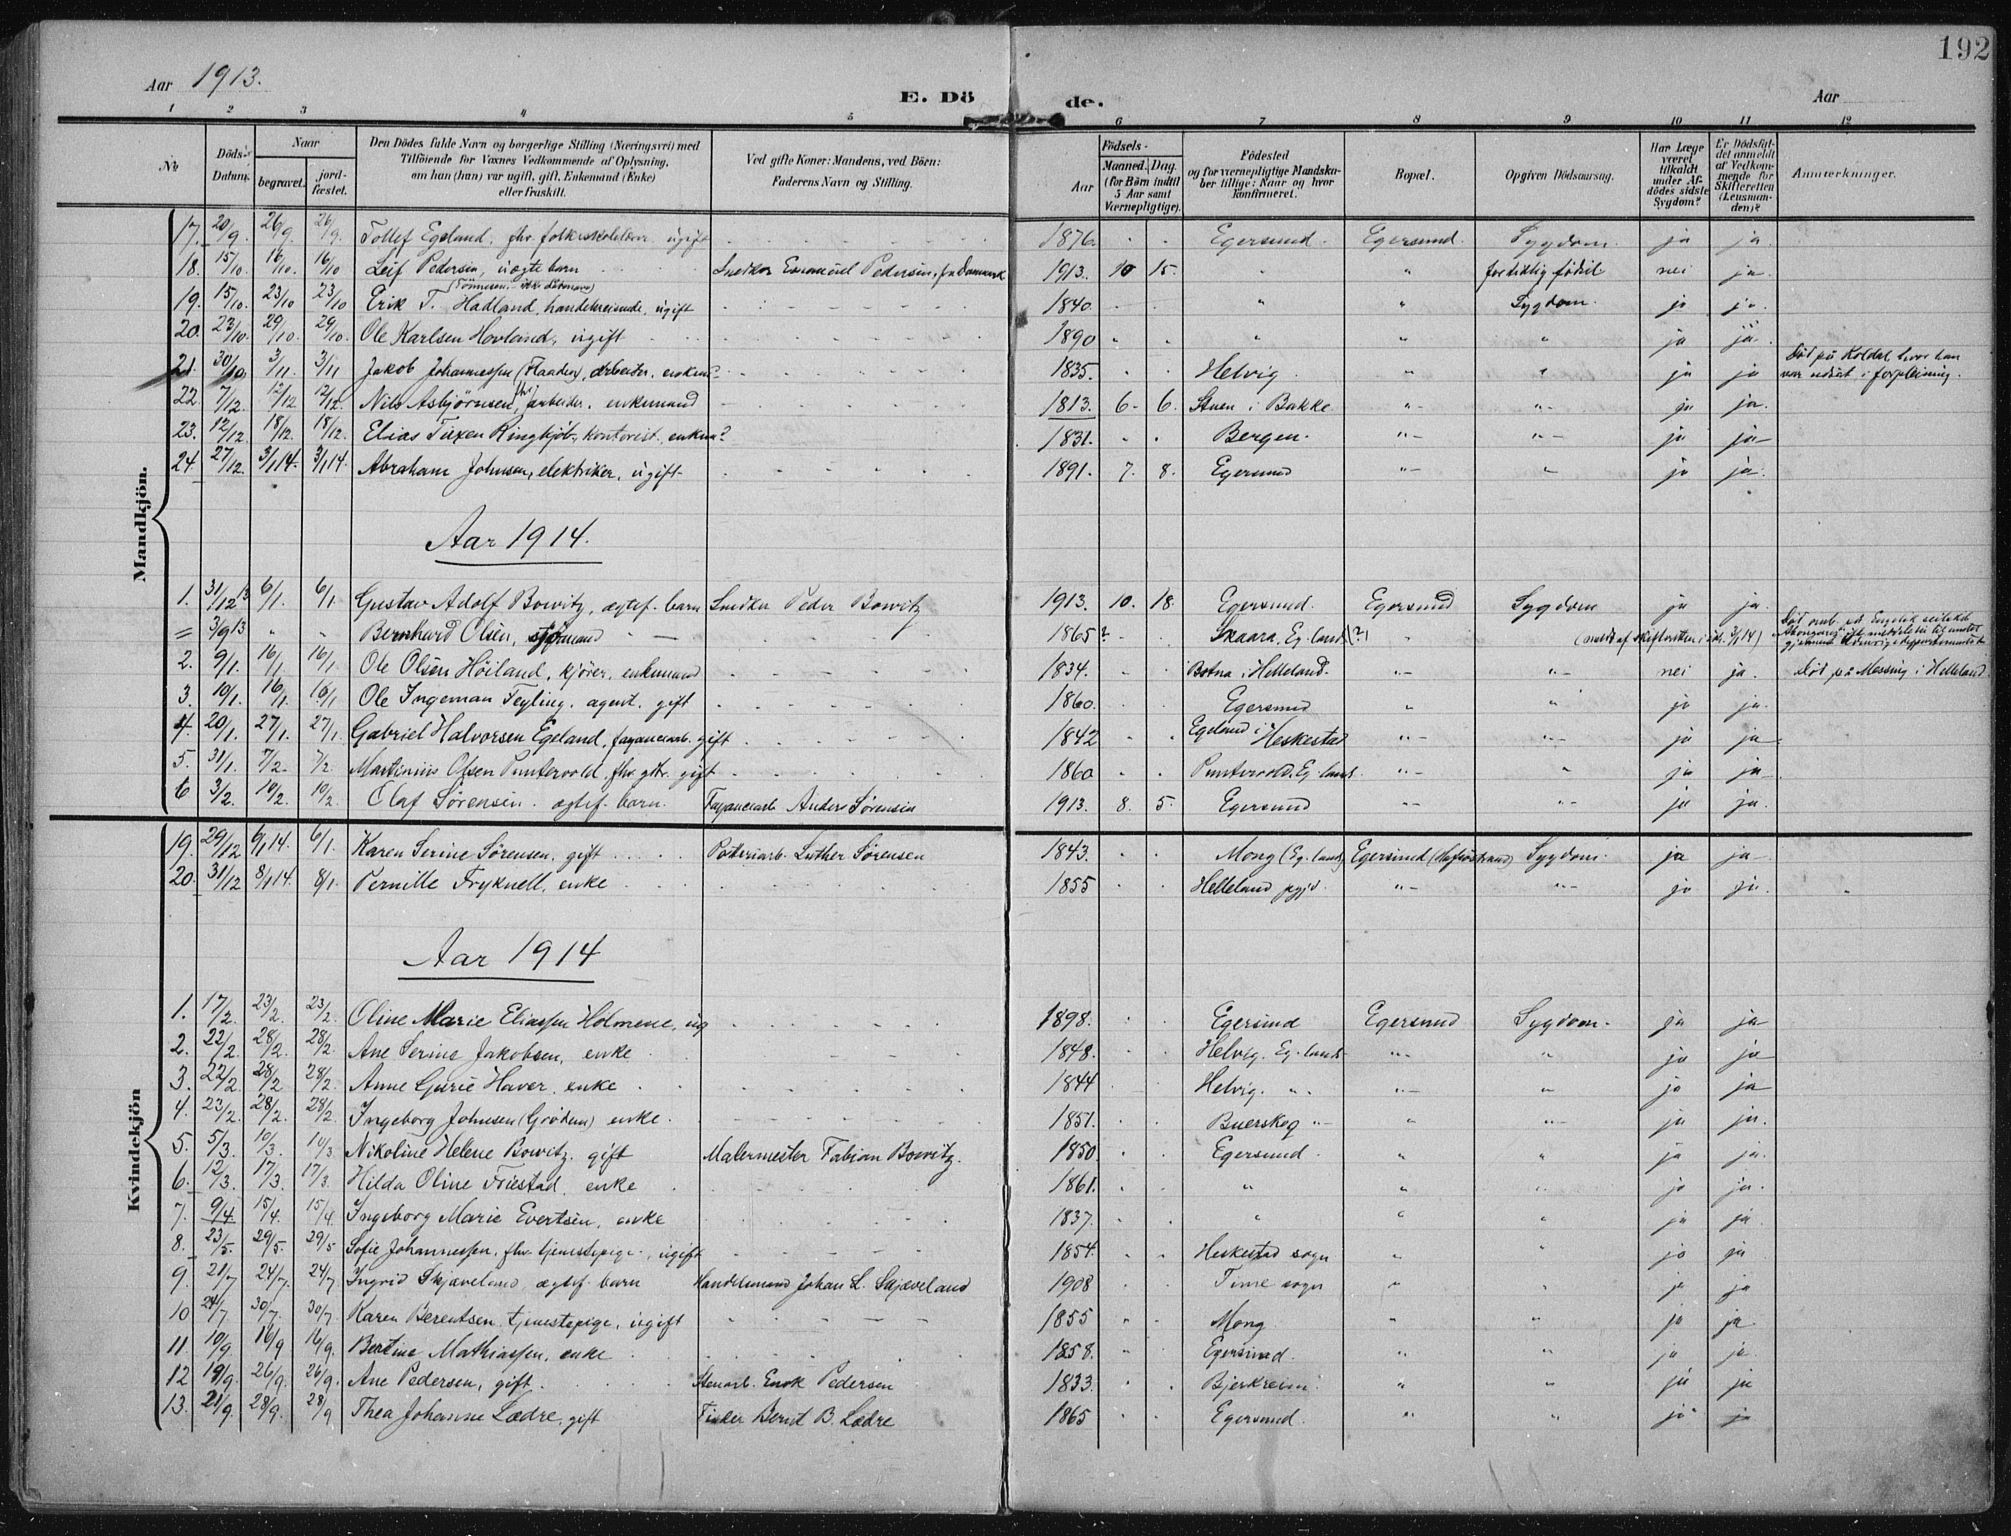 192
Aar 1913.
E. Dö de.
Aar
1 2 3 4 5 6 7 8 9 10 11 12
Nr. Döds-Datum. Naar begravet. jordfæstet. Den Dödes fulde Navn og borgerlige Stilling (Næringsvei) med Tilföiende for Voxnes Vedkommende af Oplysning, om han (hun) var ugift, gift, Enkemand (Enke) eller fraskilt. Ved gifte Koner: Mandens, ved Börn: Faderens Navn og Stilling. Födsels- Aar Maaned. Dag. (for Börn indtil 5 Aar samt Værnepligtige). Födested og for værnepligtige Mandskaber tillige: Naar og hvor konfirmeret. Bopæl. Opgiven Dödsaarsag. Har Læge været tilkaldt under Afdödes sidste Sygdom? Er Dödsfaldet anmeldt af Vedkommende for Skifteretten (Lensmanden)? Anmærkninger.
Mandkjön.
17. 20/9. 26/9. 26/9. Tollef Egeland, fhv. folkeskolelærer, ugift 1876. Egersund. Egersund. Sygdom. ja ja.
18. 15/10. 16/10. 16/10 Leif Pedersen, uægte barn Snedker Emanuel Pedersen, fra Danmark 1913. 10 15. " " for tidlig födsel nei ja
19. 15/10. 23/10 23/10 Erik T. Hadland, handelsreisende, ugift 1840. " " Sygdom. ja ja.
20. 23/10. 29/10. 29/10. Ole Karlsen Hovland, ugift 1890 " " " ja ja.
21. 30/10 3/11. 3/11 Jakob Johannessen (Flaaden), arbeider, enkem? 1835. Helvig. " " ja ja Död på Koldal, hvor han var udsat i forpleining.
22. 7/12. 12/12 12/12. Nils Asbjörnsen, fhv. arbeider, enkemand 1813. 6. 6. Stuen i Bakke. "- "- ja ja.
23. 12/12. 18/12. 18/12. Elias Tuxen Ringbjöb, kontorist, enkem? 1831. Bergen. "- "- ja ja
24. 27/12. 3/1 14. 3/1 14. Abraham Johnsen, elektriker, ugift 1891. 7. 8. Egersund "- " ja ja.
Aar 1914.
1. 31/12 13 6/1. 6/1 Gustav Adolf Bowitz, ægtef. barn Snedker Peder Bowitz 1913. 10. 18. Egersund. Egersund Sygdom ja ja.
= 3/9 13 " " Bernhard Olsen, sjömand 1865? Skaara, Eg. land (?) " (meldt af skifteretten i 3/1 14)
2. 9/1. 16/1. 16/1. Ole Olsen Höiland, kjörer, enkemand 1834. Botna i Helleland. "- "- nei ja. Död på Mossing i Helleland
3. 10/1. 16/1. 16/1 Ole Ingeman Feyling, agent, gift 1860. Egersund " " ja ja
4. 20/1. 27/1. 27/1. Gabriel Halvorsen Egeland, fayancearb. gift 1842 Egeland i Heskestad "- "- ja ja
5. 31/1. 7/2. 7/2. Martinius Olsen Puntervold, fhv. gbr. gift 1860 Puntervold, Eg. land. "- " ja ja
6 3/2. 10/2. 10/2. Olaf Sörensen, ægtef. barn. Fayancearb Anders Sörensen 1913. 8. 5. Egersund "- "- ja ja
Kvindekjön
19. 29/12 6/1 14. 6/1. Karen Serine Sörensen, gift Potteriarb. Luther Sörensen 1843. Mong (Eg. land) Egersund (Hafsöstrand) Sygdom. ja ja
20. 31/12 8/1 14. 8/1. Pernille Fryknell, enke 1855 Helleland pgjd. "- "- ja ja.
Aar 1914
1. 17/2. 23/2. 23/2. Oline Marie Eliassen Holmene, ug 1898. Egersund Egersund Sygdom. ja ja
2. 22/2. 28/2. 28/2. Ane Serine Jakobsen, enke 1848. Helvig, Eg-land "- " ja ja
3. 22/2 28/2 28/2. Anne Gurie Haver, enke 1844 Helvig. " "- " ja ja
4. 23/2. 28/2. 28/2 Ingeborg Johnsen (Grödem) enke 1851. Buerskog "- " "- ja ja.
5. 5/3. 10/3. 10/3 Nikoline Helene Bowitz, gift Malermester Fabian Bowitz. 1850. Egersund. " " ja ja.
6. 12/3. 17/3. 17/3. Hilda Oline Friestad, enke 1861. " " " ja ja.
7. 9/4 15/4. 15/4. Ingeborg Marie Evertsen, enke 1837. " " " ja ja.
8. 23/5. 29/5. 29/5 Sofie Johannessen, fhv. tjenestepige, ugift 1854. Heskestad sogn " " ja ja
9. 21/7 24/7. 24/7. Ingrid Skjæveland, ægtef. barn Handelsmand Johan L. Skjæveland 1908 Time sogn " " ja ja
10 24/7 30/7. 30/7 Karen Berentsen, tjenestepige, ugift 1855 Mong. " " ja ja
11. 10/9. 16/9 16/9. Bertine Mathiassen, enke 1858. Egersund. " " ja ja.
12 19/9. 26/9. 26/9. Ane Pedersen, gift. Stenarb. Enok Pedersen 1833. Bjerkreim " " ja ja
13. 21/9. 28/9. 28/9 Thea Johanne Lædre, gift Fisker Bernt B. Lædre 1865 Egersund. " " ja ja